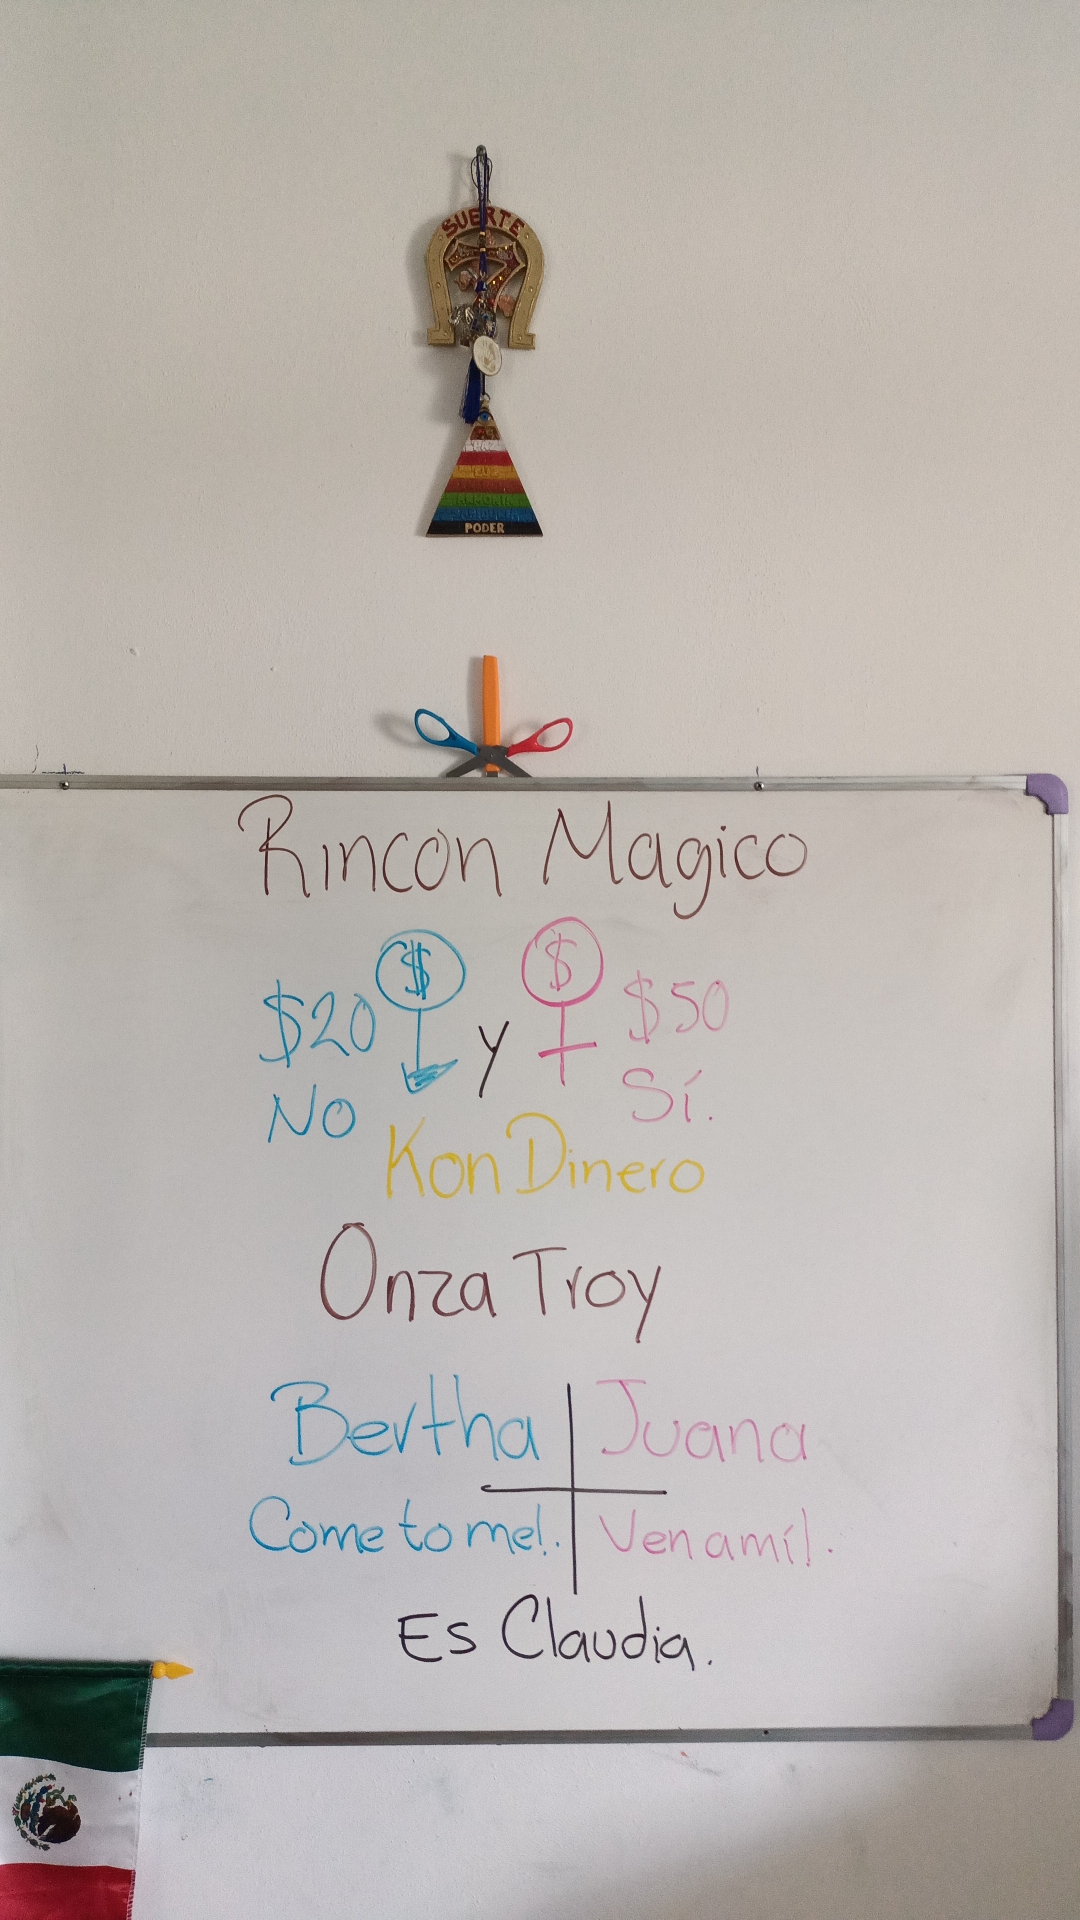 SUERTE
7
PODER
Rincon Magico
$ $
$20 y $50
No Sí.
Kon Dinero
Onza Troy
Bertha Juana
Come to me!. Ven a mí!.
Es Claudia.